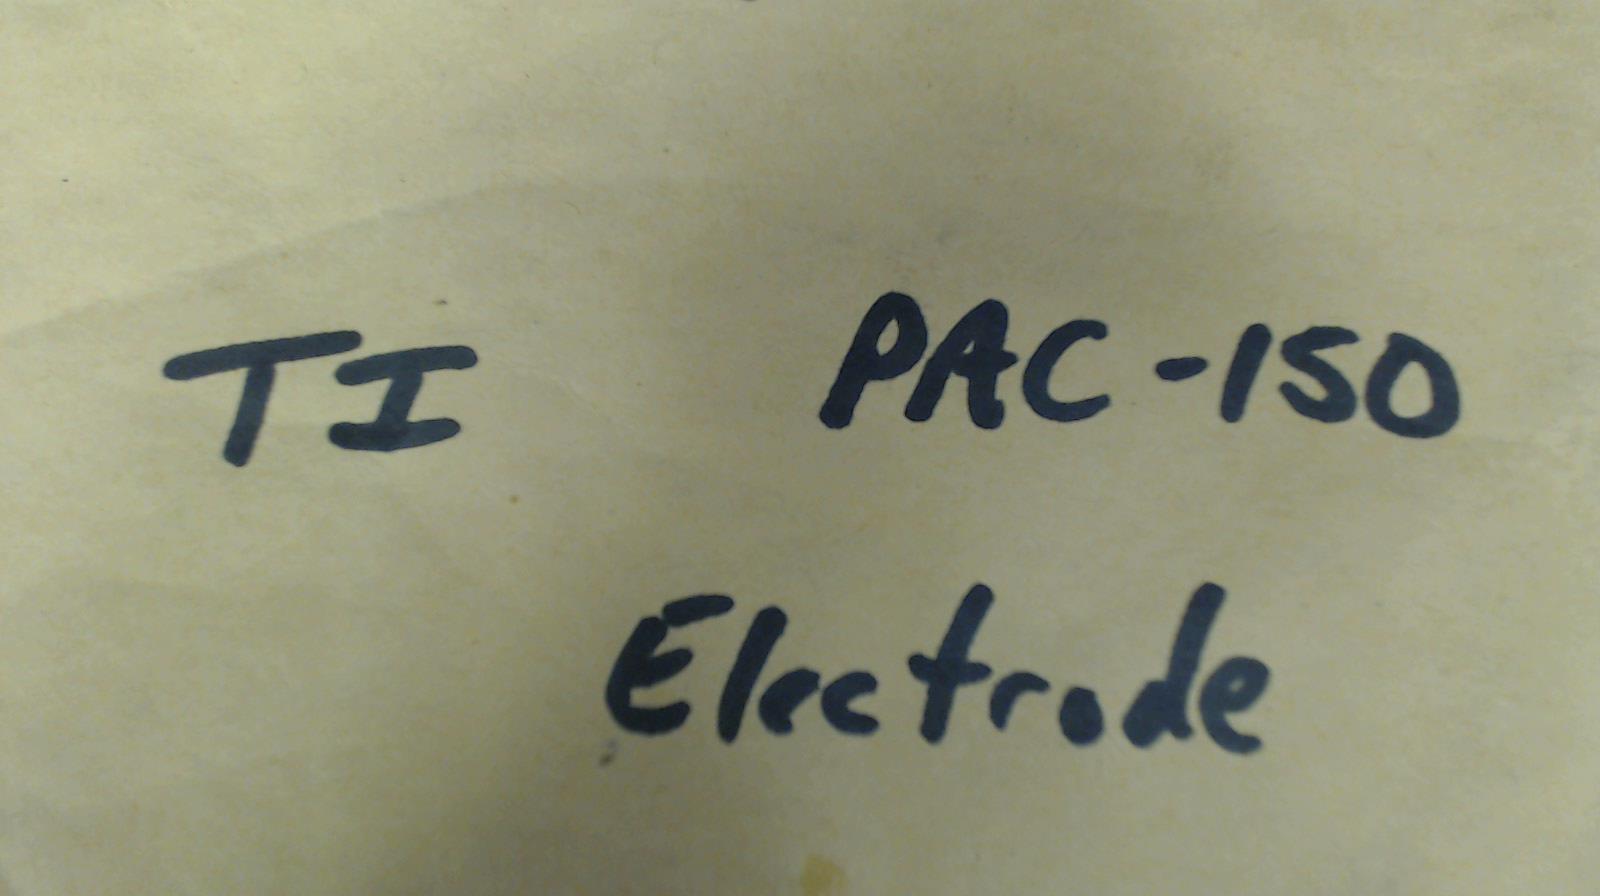 TI PAC-150
Electrode